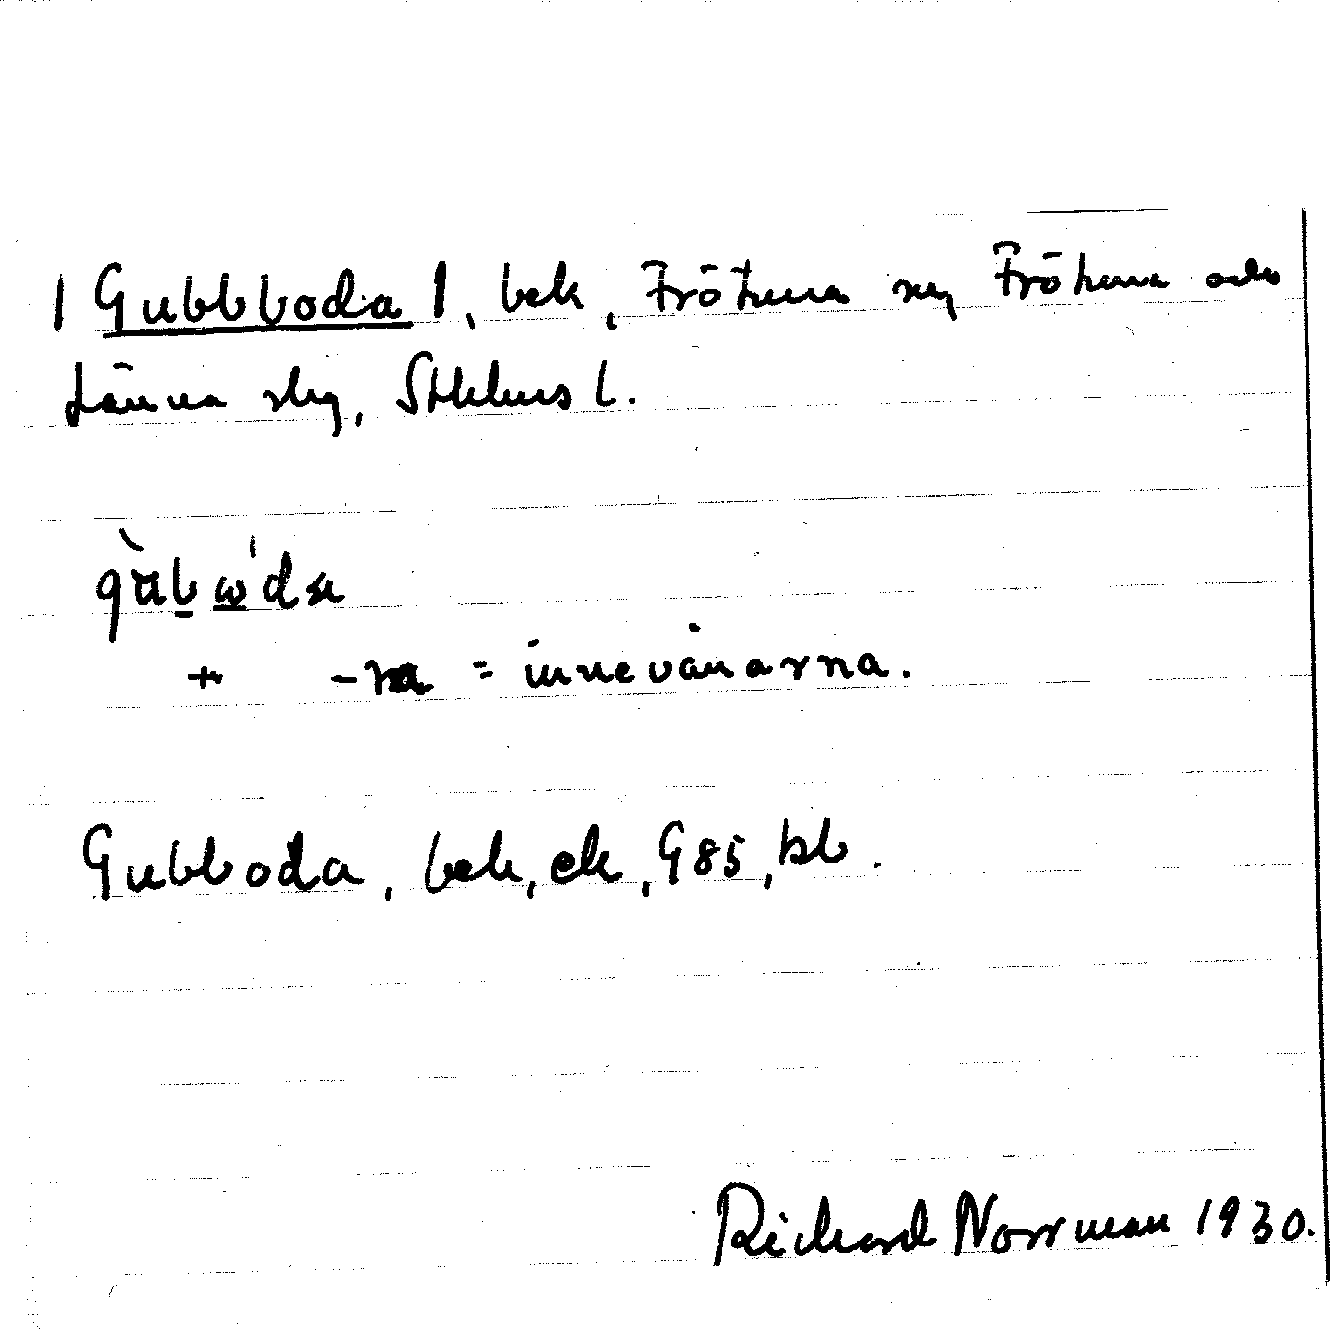 | Gubbboda |, bek, Frötuna sn, Frötuna och
Länna slg, Sthlms l.
gὰbω'da
+ -na = innevånarna.
Gubboda, bek, ek, G85, bb.
Richard Norrman 1930.